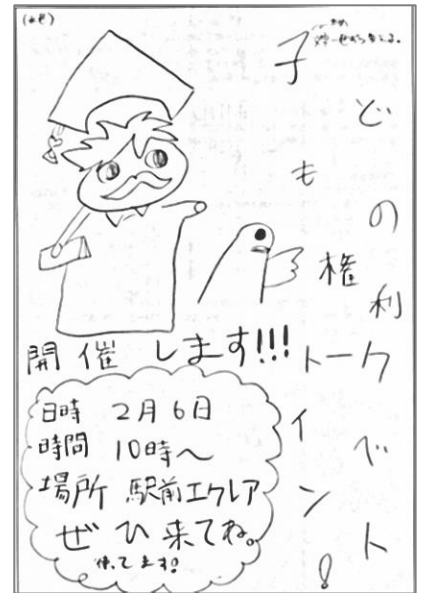 子どもの権利トークイベント!
開催します!!!
日時 2月6日
時間 10時~
場所 駅前エクレア
ぜひ来てね。
待ってます!